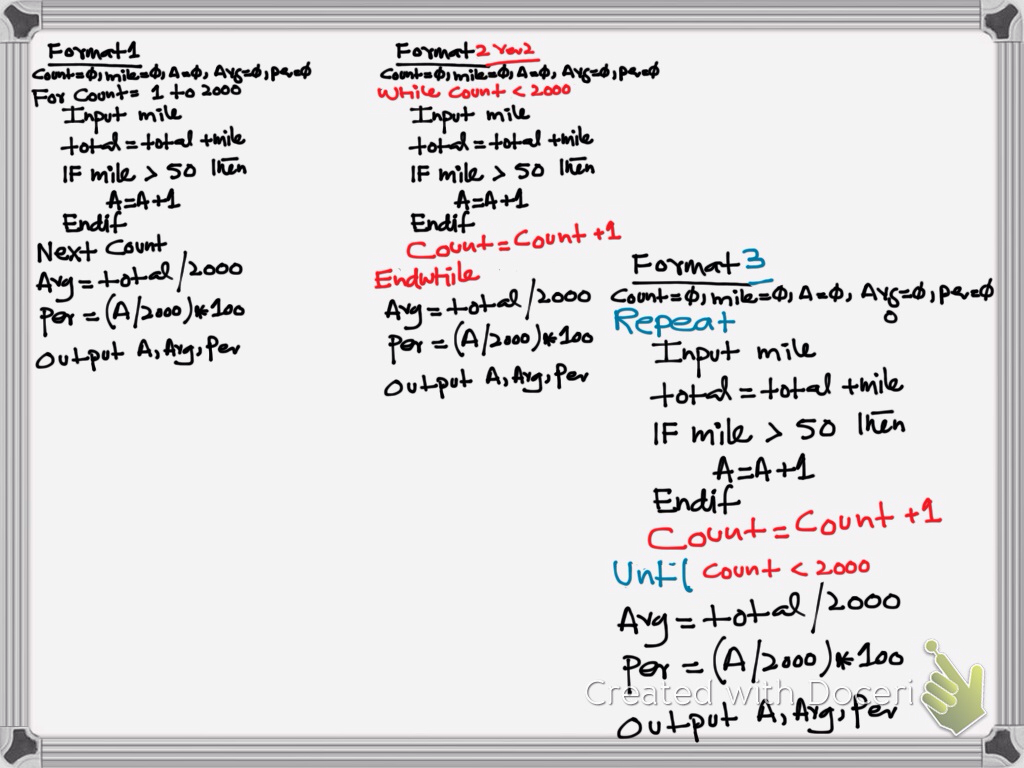 Format1
Count=ϕ, mile=ϕ, A=ϕ, Avg=ϕ, per=ϕ
For Count = 1 to 2000
Input mile
total = total + mile
IF mile > 50 then
A=A+1
Endif
Next Count
Avg = total / 2000
Per = (A/2000)*100
Output A, Avg, Per
Format 2 ver2
Count=ϕ, mile=ϕ, A=ϕ, Avg=ϕ, per=ϕ
While Count < 2000
Input mile
total = total + mile
IF mile > 50 then
A=A+1
Endif
Count = Count + 1
Endwhile
Avg = total / 2000
Per = (A/2000)*100
Output A, Avg, Per
Format 3
Count=ϕ, mile=ϕ, A=ϕ, Avg=ϕ, per=ϕ
0
Repeat
Input mile
total = total + mile
IF mile > 50 then
A=A+1
Endif
Count = Count + 1
Until Count < 2000
Avg = total / 2000
Per = (A/2000)*100
Created with Doceri
Output A, Avg, Per